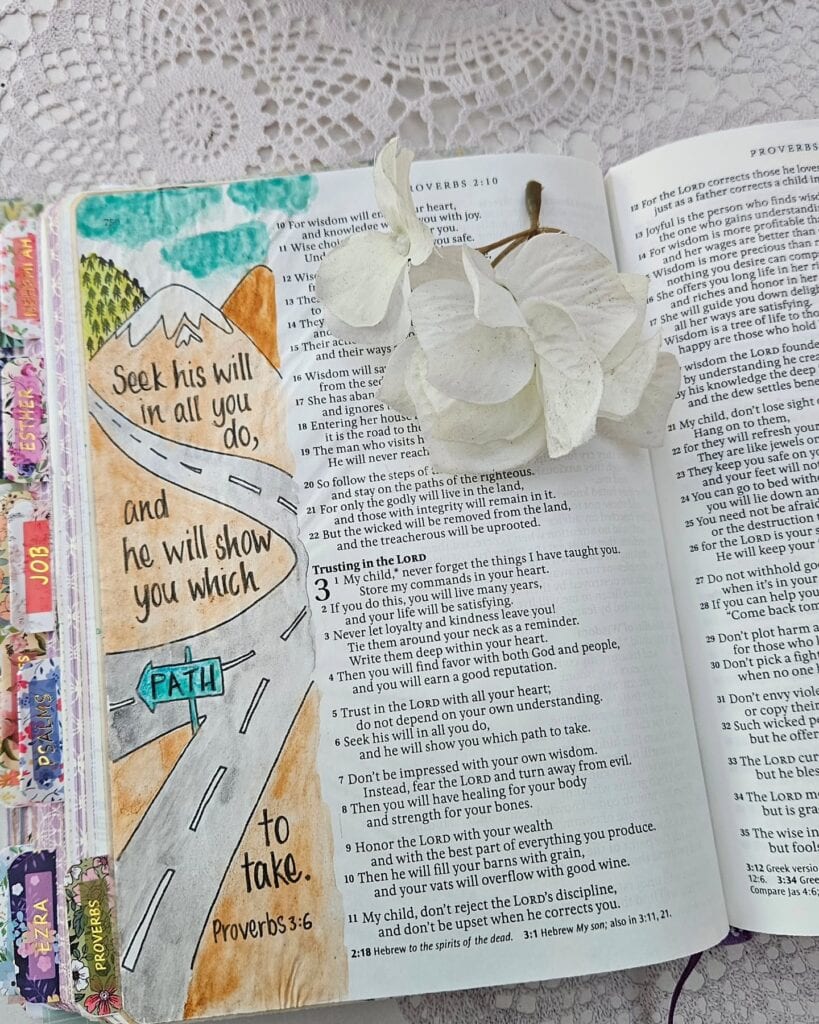 JEREMIAH
ESTHER
JOB
PSALMS
EZRA
PROVERBS
Seek his will
in all you
do,
and
he will show
you which
PATH
to
take.
Proverbs 3:6
PROVERBS 2:10
10 For wisdom will your heart,
and knowledge you with joy.
11 Wise you safe.
12 Wise
13
to
14 They
and
15 Their
and their ways
16 Wisdom will
from the
17 She has
and ignores
18 Entering her house
it is the road to
19 The man who visits
He will never reach
20 So follow the steps of
and stay on the paths of the righteous.
21 For only the godly will live in the land,
and those with integrity will remain in it.
22 But the wicked will be removed from the land,
and the treacherous will be uprooted.
Trusting in the LORD
3 1 My child,* never forget the things I have taught you.
Store my commands in your heart.
2 If you do this, you will live many years,
and your life will be satisfying.
3 Never let loyalty and kindness leave you!
Tie them around your neck as a reminder.
Write them deep within your heart.
4 Then you will find favor with both God and people,
and you will earn a good reputation.
5 Trust in the LORD with all your heart;
do not depend on your own understanding.
6 Seek his will in all you do,
and he will show you which path to take.
7 Don't be impressed with your own wisdom.
Instead, fear the LORD and turn away from evil.
8 Then you will have healing for your body
and strength for your bones.
9 Honor the LORD with your wealth
and with the best part of everything you produce.
10 Then he will fill your barns with grain,
and your vats will overflow with good wine.
11 My child, don't reject the LORD's discipline,
and don't be upset when he corrects you.
2:18 Hebrew to the spirits of the dead. 3:1 Hebrew My son; also in 3:11, 21.
PROVERBS
12 For the LORD corrects those he loves
just as a father corrects a child in
13 Joyful is the person who finds
the one who gains
14 For wisdom is more profitable
and her wages are better than
15 Wisdom is more precious than
nothing you desire can
16 She offers you long life in her
and riches and honor in her
17 She will guide you down
all her ways are satisfying.
Wisdom is a tree of life to
happy are those who hold
wisdom the LORD
by understanding he
by his knowledge the deep
and the dew settles
21 My child, don't lose sight
Hang on to them,
22 for they will refresh your
They are like jewels on
23 They keep you safe on
and your feet will not
24 You can go to bed
you will lie down and
25 You need not be
or the destruction
26 for the LORD is your
He will keep your
27 Do not withhold
when it's in your
28 If you can help
"Come back
29 Don't plot harm
for those who
30 Don't pick a
when no one
31 Don't envy
or copy their
32 Such wicked
but he
33 The LORD
but he
34 The LORD
but is
35 The wise
but
3:12 Greek
12:6. 3:34
Compare Jas 4:6;